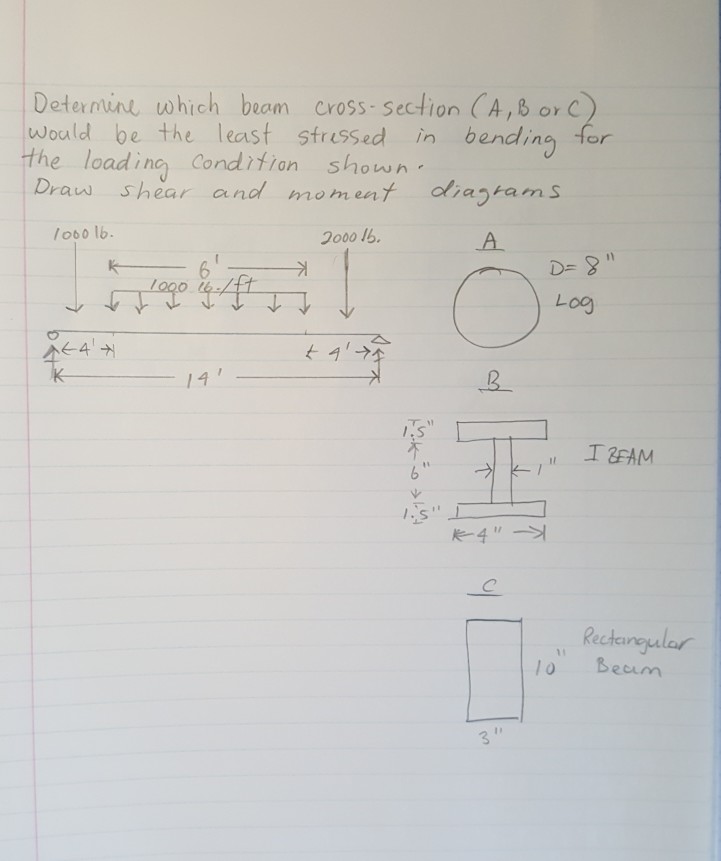 Determine which beam cross-section (A, B or C)
would be the least stressed in bending for
the loading condition shown.
Draw shear and moment diagrams
1000 lb. 2000 lb.
6'
1000 lb./ft
4' 4'
14'
A
D= 8"
Log
B
1.5"
6"
1"
I BEAM
1.5"
4"
C
Rectangular
10" Beam
3"